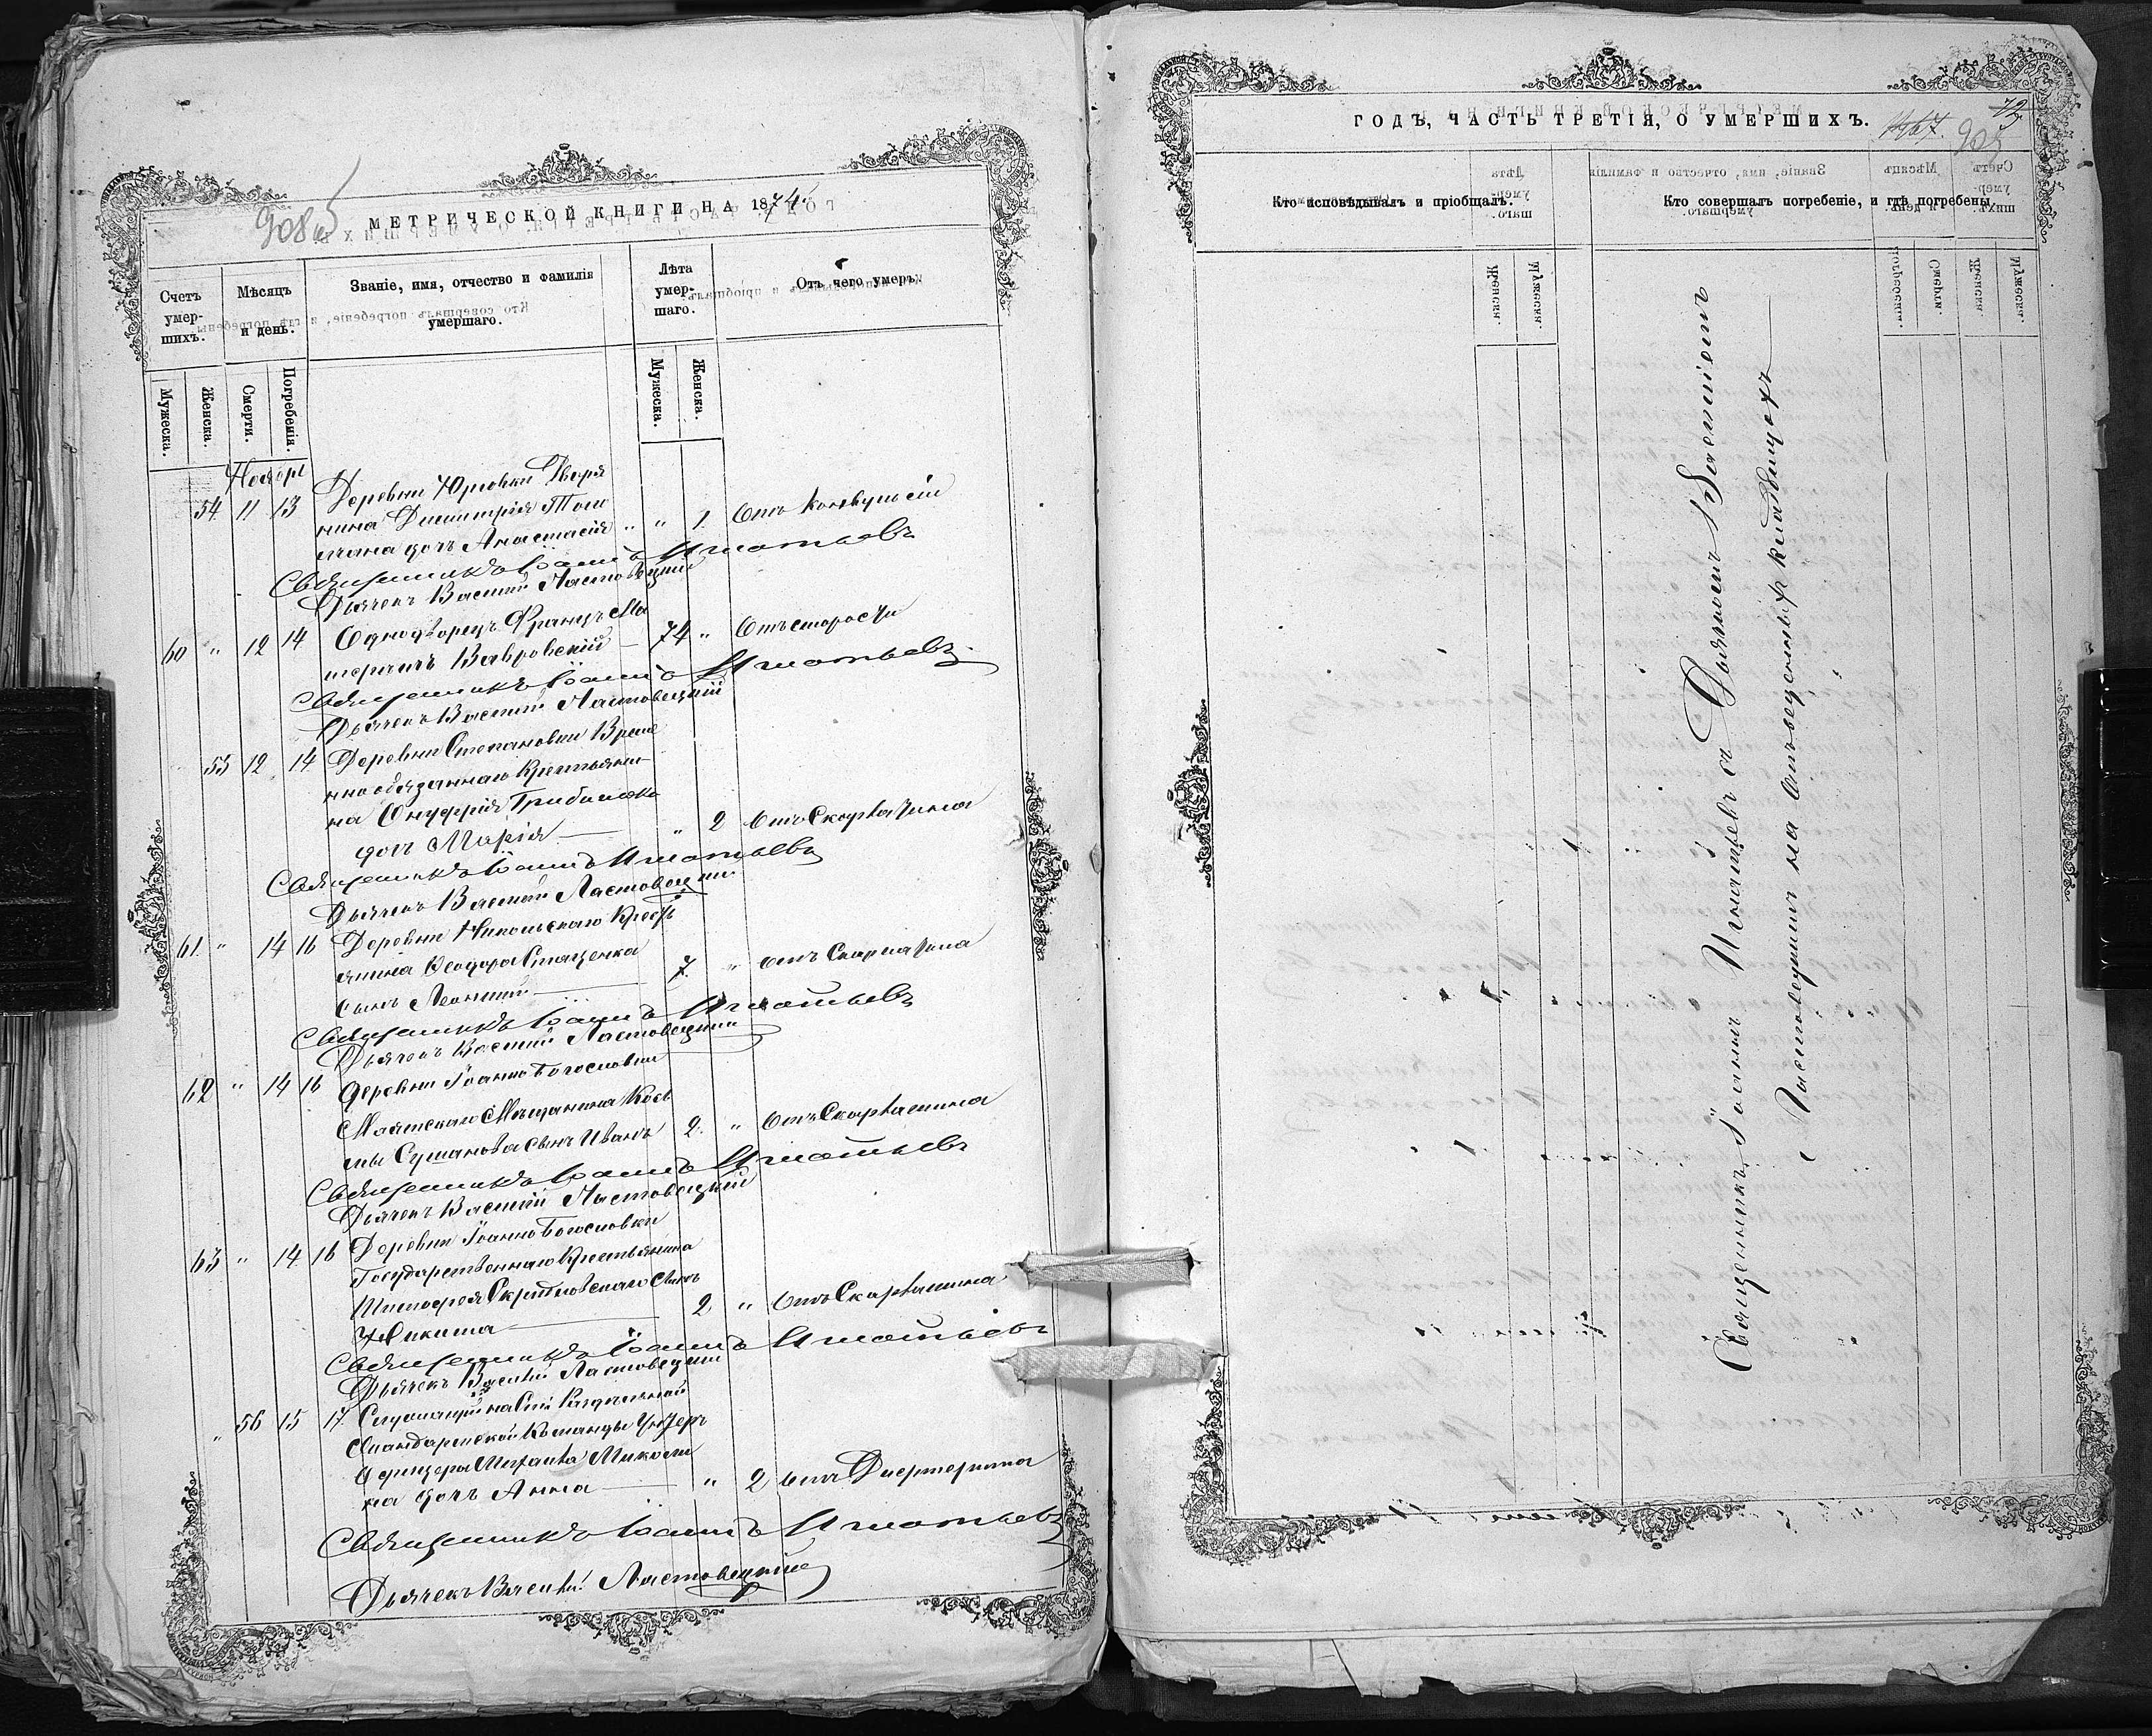 908об
МЕТРИЧЕСКОЙ КНИГИ НА 1874.
Счетъ умер-шихъ.
Мѣсяцъ и день.
Званіе, имя, отчество и фамилія умершаго.
Лѣта умер-шаго.
Отъ чего умеръ.
Мужеска.
Женска.
Смерти.
Погребенія.
Мужеска.
Женска.
Ноябрь
Деревни Юрьевки Дворя
54 11 13 нина Димитрія
дочь Анастасія " " 1. Отъ Конвульсіи
Священникъ Іоаннъ Игнатьевъ
Дьячекъ Василій Ластовецкій
60 " 12 14 Однодворецъ Францъ Ма
Вавровскій — 74 " Отъ старости
Священникъ Іоаннъ Игнатьевъ
Дьячекъ Василій Ластовецкій
55 12 14 Деревни Степановки Време
нно обязаннаго Крестьяни-
на Онуфрія
дочь Марія — " 2 Отъ Скарлатина
Священникъ Іоаннъ Игнатьевъ
Дьячекъ Василій Ластовецкій
61. " 14 16 Деревни Никольскаго Кресть
янина Ѳеодора Стаценка
сынъ Леонтій — 7. " отъ Скарлатина
Священникъ Іоаннъ Игнатьевъ
Дьячекъ Василій Ластовецкій
62 " 14 16 Деревни Іоанно Богословки
Маятскаго Мѣщанина Козь
мы Сушанова сынъ Иванъ 2. " Отъ Скарлатина
Священникъ Іоаннъ Игнатьевъ
Дьячекъ Василій Ластовецкій
63 " 14 16 Деревни Іоанно Богословки
Государственнаго Крестьянина
Тимофея сынъ
Никита — 2 " Отъ Скарлатина
Священникъ Іоаннъ Игнатьевъ
Дьячекъ Василій Ластовецкій
" 56 15 17
Жандармской Команды Унтеръ
Офицера Михаила
на дочь Анна — " 2 отъ Дифтерита
Священникъ Іоаннъ Игнатьевъ
Дьячекъ Василій Ластовецкій
ГОДЪ, ЧАСТЬ ТРЕТІЯ, О УМЕРШИХЪ.
Кто исповѣдывалъ и пріобщалъ.
Кто совершалъ погребеніе, и гдѣ погребены.
Священникъ Іоаннъ Игнатьевъ съ Дьячкомъ Василіемъ
Ластовецкимъ на Отъведенныхъ кладбищахъ